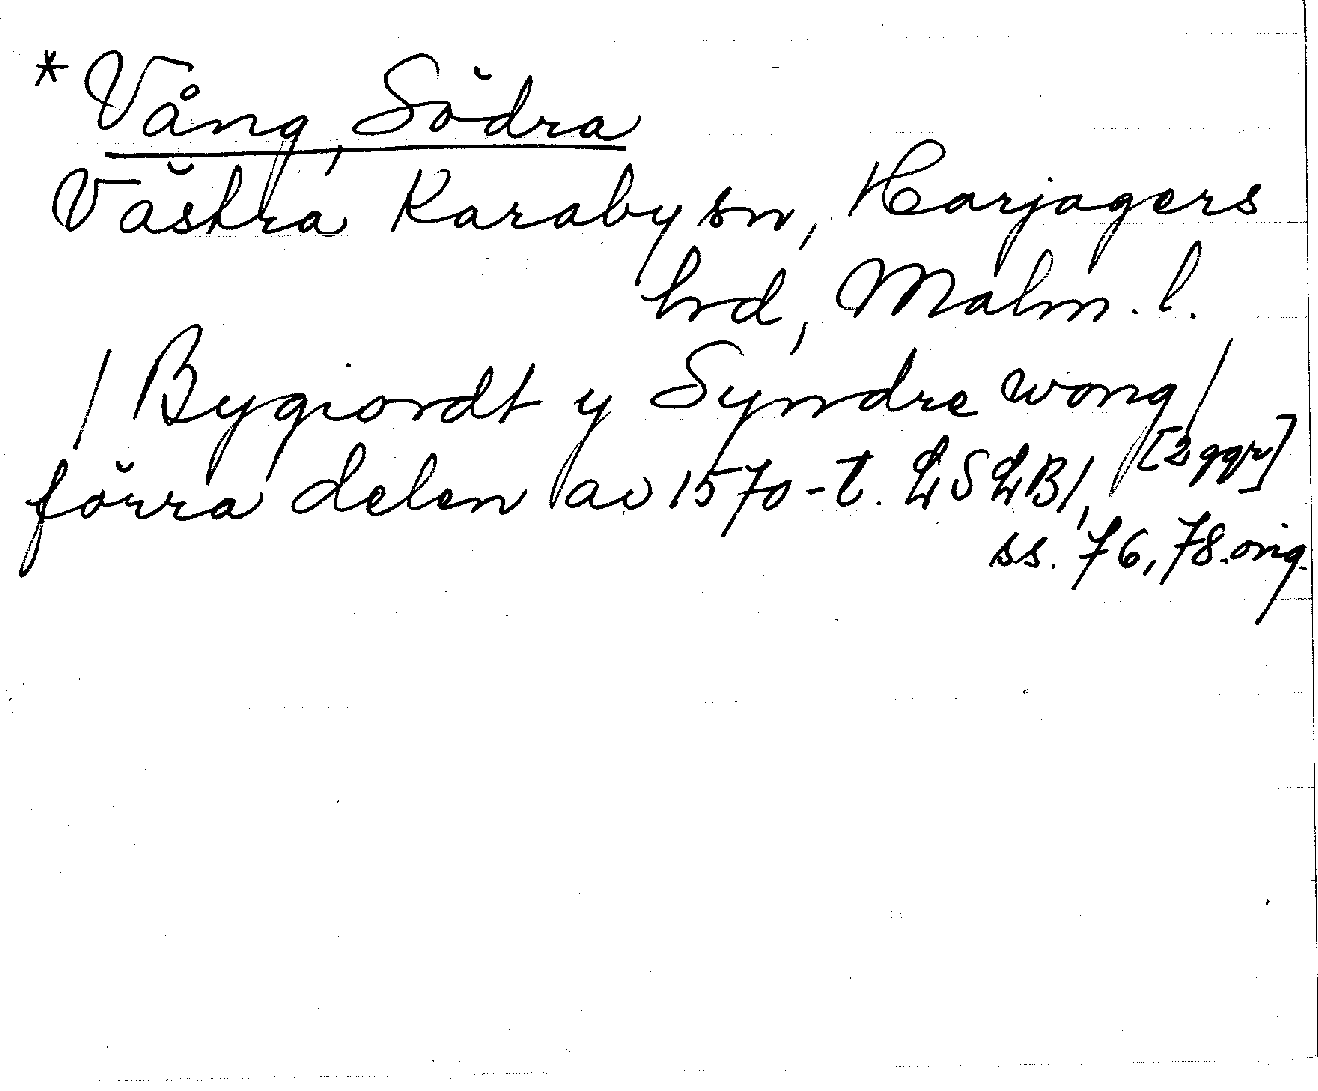 *Vång, Södra
Västra Karaby sn, Harjagers
hd, Malm. l.
/ Bygiordt y Syndre wong/
[2 ggr]
förra delen av 1570-t. LSLB1,
ss. 76, 78. orig.